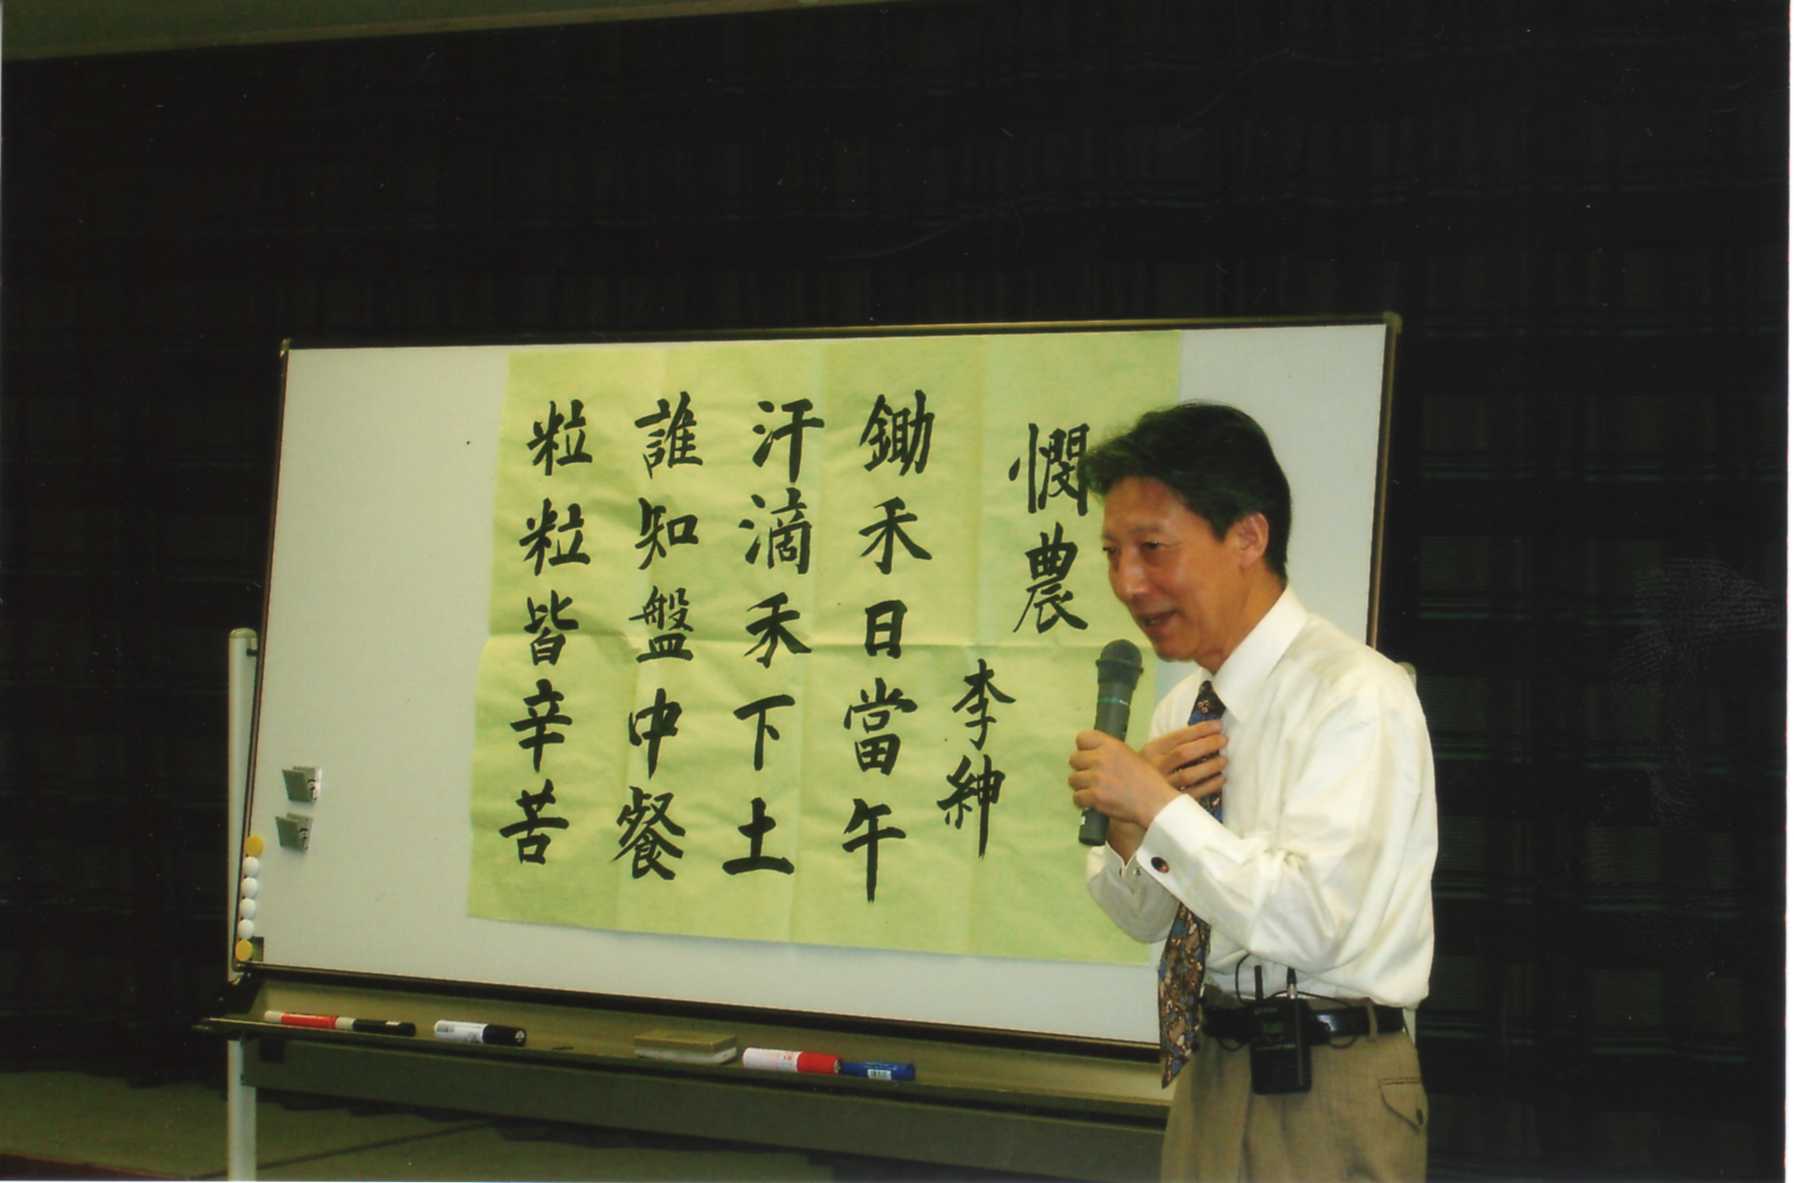 憫農
李紳
鋤禾日當午
汗滴禾下土
誰知盤中餐
粒粒皆辛苦